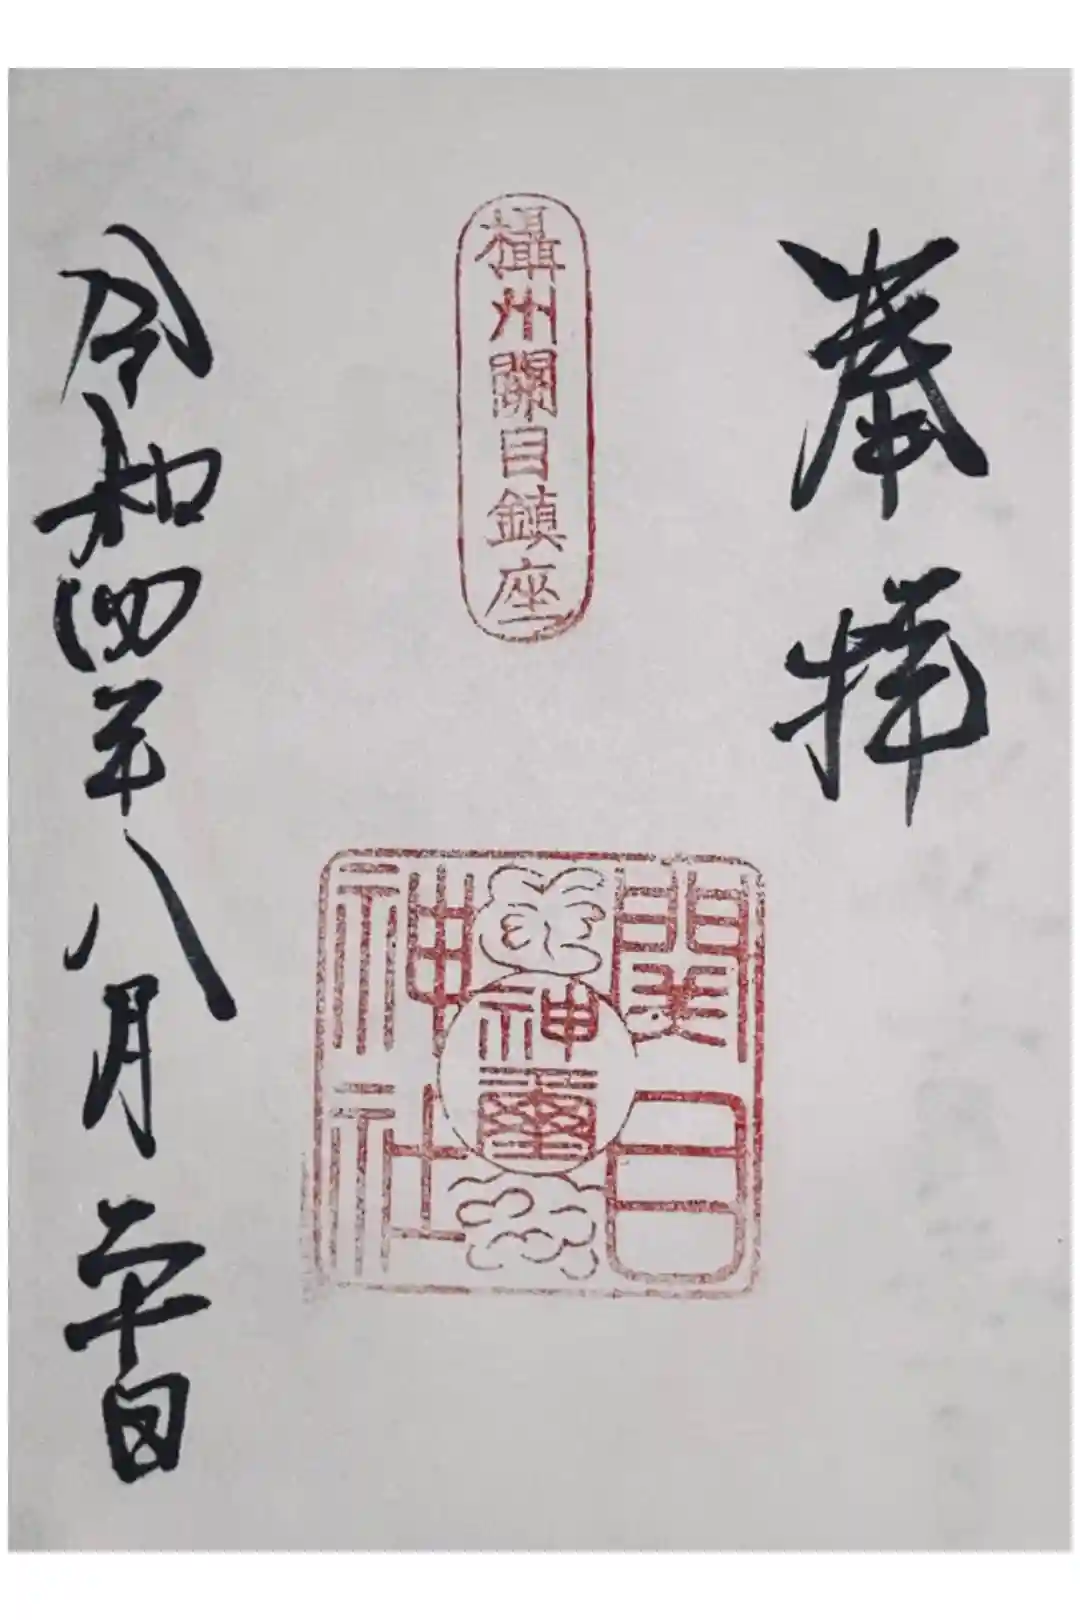 奉拝
攝州關目鎮座
関目
神璽
神社
令和四年八月二十日